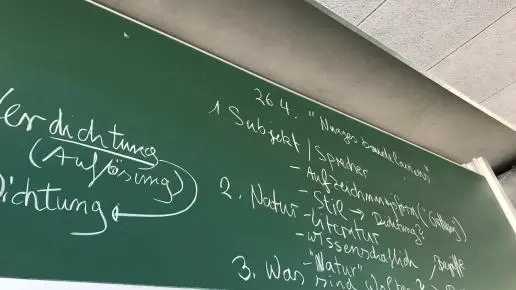 Verdichtung
(Auflösung)
Dichtung
26 4. "Nuages
1. Subjekt / Sprecher
- Aufzeichnungsform (Gattung)
- Stil → Dichtung?
2. Natur - Literatur
- wissenschaftlich, Begriffe
- "Natur"
3. Was sind